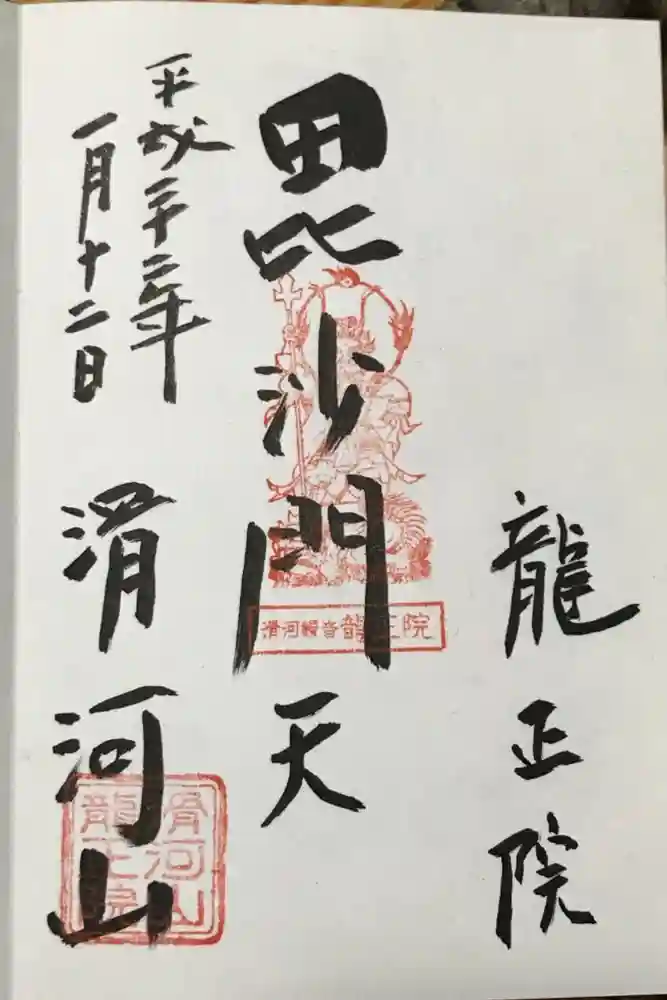 龍正院
毘沙門天
滑河観音 龍正院
平成三十二年
一月十二日
滑河山
滑河山
龍正院